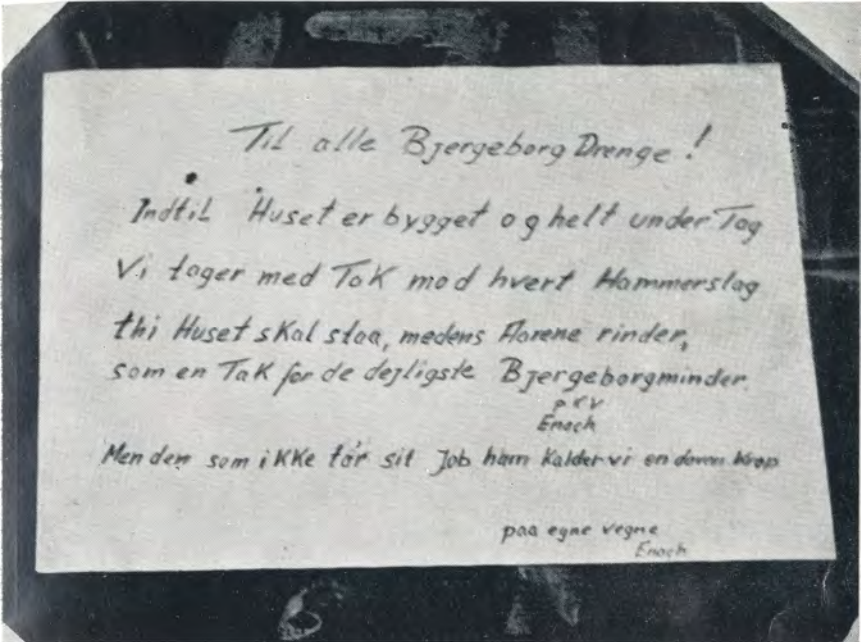 Til alle Bjergeborg Drenge!
Indtil Huset er bygget og helt under Tag
Vi tager med Tak mod hvert Hammerslag
thi Huset skal staa, medens Aarene rinder,
som en Tak for de dejligste Bjergeborgminder.
p k v
Enoch
Men den som ikke tár sit Job ham kalder vi en doven Krop
paa egne vegne
Enoch